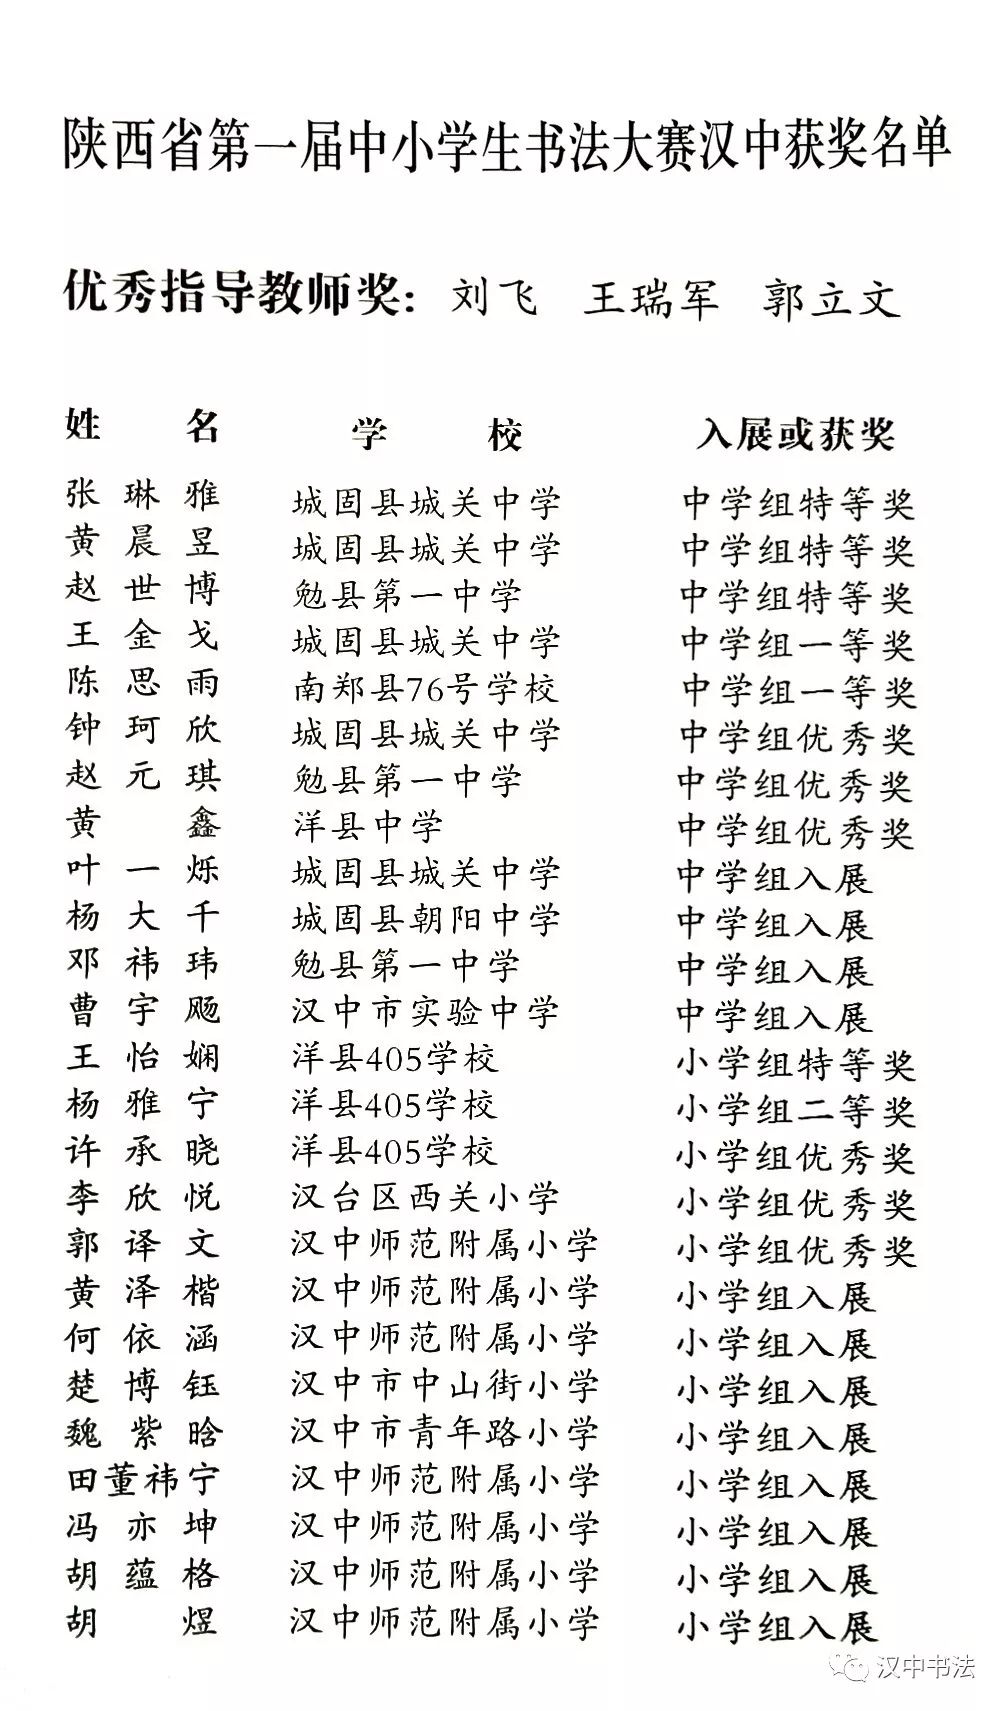 陕西省第一届中小学生书法大赛汉中获奖名单
优秀指导教师奖：刘飞 王瑞军 郭立文
姓名 学校 入展或获奖
张琳雅 城固县城关中学 中学组特等奖
黄晨昱 城固县城关中学 中学组特等奖
赵世博 勉县第一中学 中学组特等奖
王金戈 城固县城关中学 中学组一等奖
陈思雨 南郑县76号学校 中学组一等奖
钟珂欣 城固县城关中学 中学组优秀奖
赵元琪 勉县第一中学 中学组优秀奖
黄鑫 洋县中学 中学组优秀奖
叶一烁 城固县城关中学 中学组入展
杨大千 城固县朝阳中学 中学组入展
邓祎玮 勉县第一中学 中学组入展
曹宇飏 汉中市实验中学 中学组入展
王怡娴 洋县405学校 小学组特等奖
杨雅宁 洋县405学校 小学组二等奖
许承晓 洋县405学校 小学组优秀奖
李欣悦 汉台区西关小学 小学组优秀奖
郭译文 汉中师范附属小学 小学组优秀奖
黄泽楷 汉中师范附属小学 小学组入展
何依涵 汉中师范附属小学 小学组入展
楚博钰 汉中市中山街小学 小学组入展
魏紫晗 汉中市青年路小学 小学组入展
田董祎宁 汉中师范附属小学 小学组入展
冯亦坤 汉中师范附属小学 小学组入展
胡蕴格 汉中师范附属小学 小学组入展
胡煜 汉中师范附属小学 小学组入展
汉中书法